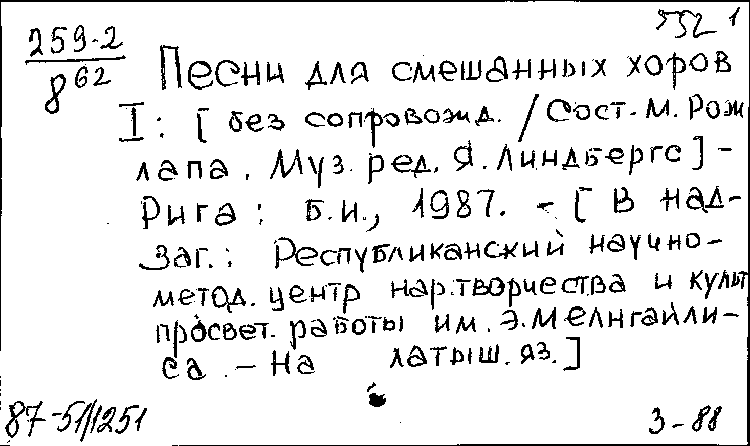 552 1
259-2
8 62
Песни для смешанных хоров
I: [без сопровожд. / Сост. М. Рож
лапа. Муз. ред. Я. Линдбергс] -
Рига: Б.и., 1987. - [В над-
заг.: Республиканский научно-
метод. центр нар. творчества и культ
просвет. работы им. Э. Мелнгайли-
са. - На латыш. яз.]
87-51/1251
3-88